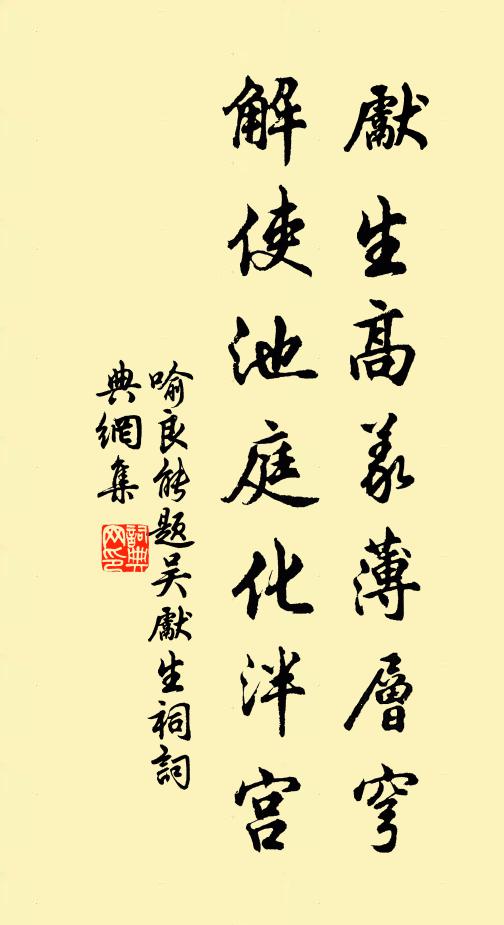 獻生高義薄層穹
解使池庭化泮宮
喻良能題吳獻生祠詞
典網集
詞典網印